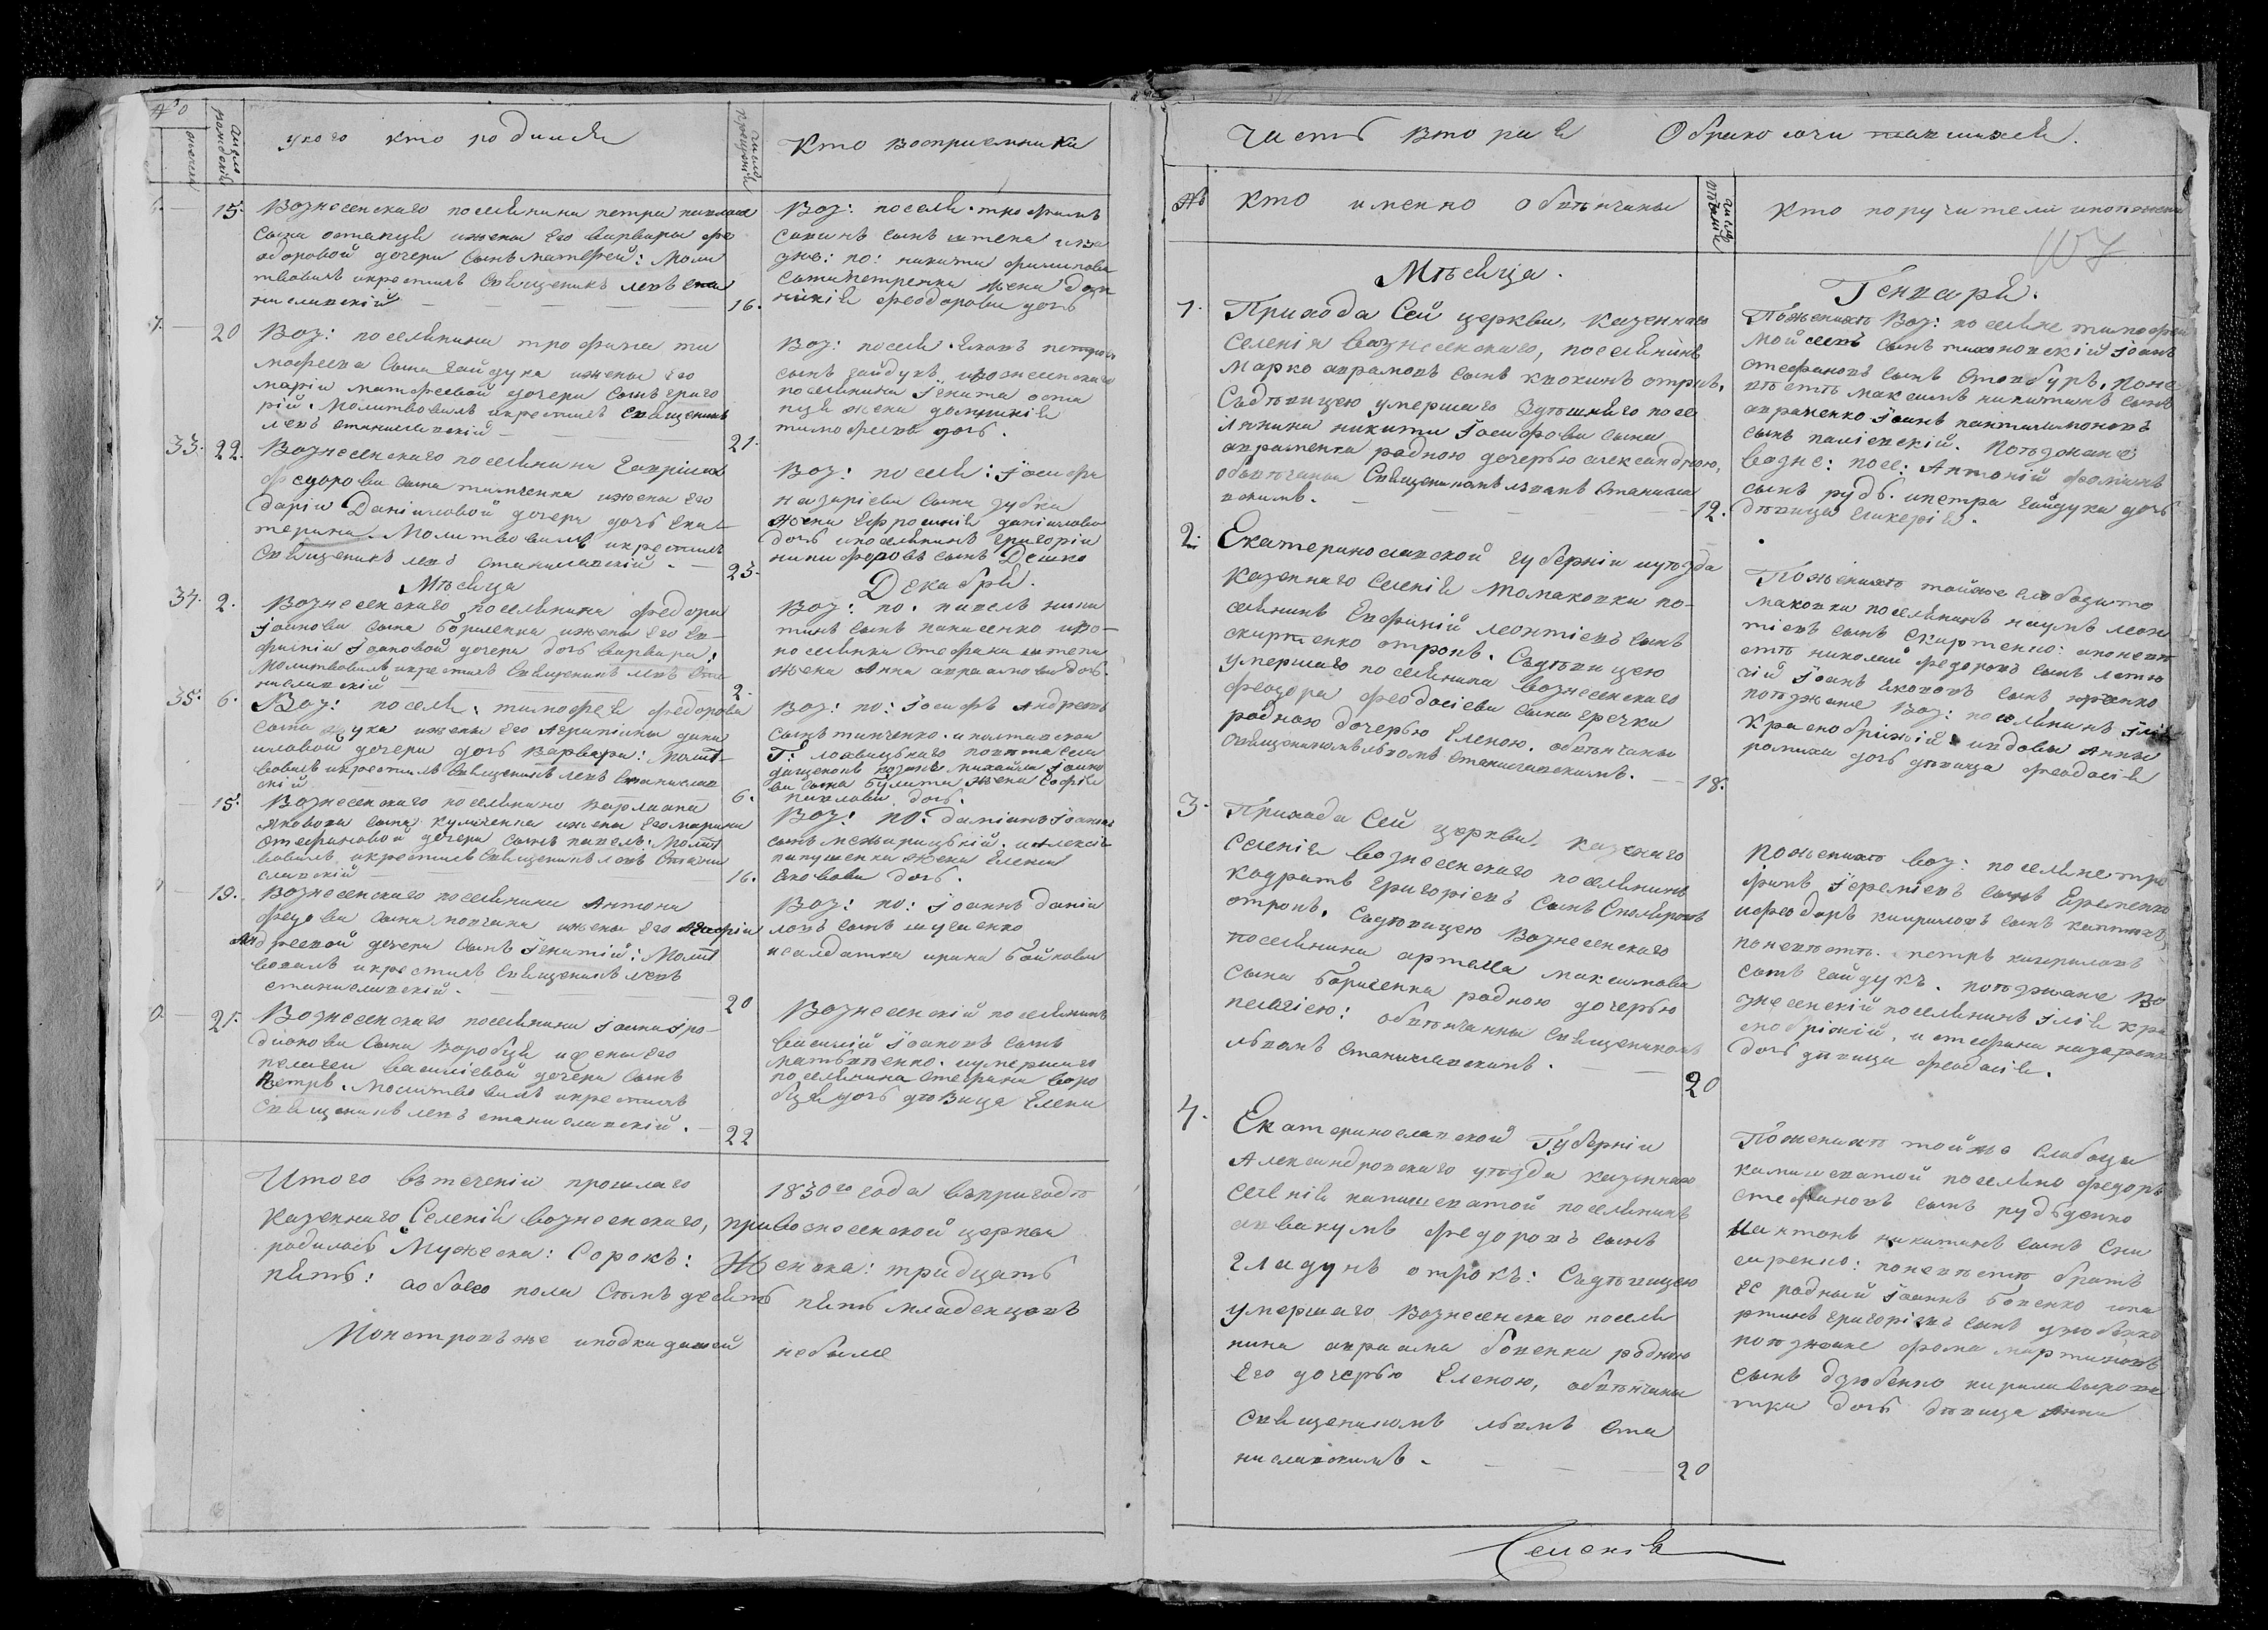 №
число рождений
у кого кто родился
число крещений
Кто восприемники
15.
Вознесенскаго поселянина петра павлова
сына остапця и жены его варвары фе
одоровой дочери сынъ матфей: Моли
твовалъ и крестилъ священикъ левъ ста
ниславскій
16.
Воз: посели. трофимъ
савинъ сынъ
зне: по: никити филипова
сына петренка жена
феодорова дочь
20
Воз: поселянина трофима ти
мофеева сына гайдука и жены его
маріи матфеевой дочери сынъ григо
рій. Молитвовалъ и крестилъ священикъ
левъ станиславскій
21.
Воз: посели. яковъ петровъ
сынъ гайдукъ, и вознесенскаго
поселянина Ігната оста
пця жена
тимофеева дочь.
33. 22.
Вознесенскаго поселянина Гавріила
федорова сына тимченка и жены его
даріи Даніиловой дочери дочь Ека
терина. Молитвовалъ и крестилъ
Священикъ левъ станиславскій.
23.
Воз: посели: Іосифа
назаріева сына зубка
жена Ефросинія даніилова
дочь и поселянинъ григорій
никифоровъ сынъ Дешко
Мѣсяца
Декабря.
34. 2.
Вознесенскаго поселянина федора
Іоанова сына бориленка и жены его Ев
фиміи Іоановой дочери дочь варвара:
Молитвовалъ и крестилъ священикъ левъ ста
ниславскій
2.
Воз: по. павелъ ники
тинъ сынъ панасенко и во-
поселянина Стефана
жена Анна авраамова дочь.
35. 6.
Воз: посели. тимофея федорова
сына жука и жены его Агрипины дани
иловой дочери дочь варвара: Молит
вовалъ и крестилъ священикъ левъ станислав
скій
6.
Воз: по: Іосифъ Андреевъ
сынъ тимченко. и полтавской
Г: лохвицькаго повѣта села
козака михайла Іоано
ва сына булата жена софія
павлова дочь.
15.
Вознесенскаго поселянина Варлаама
Яковова сына куличенка и жены его марины
Стефановой дочери сынъ павелъ: Молит
вовалъ и крестилъ священикъ левъ Стани
славскій
16.
Воз: по: даміанъ Іоановъ
сынъ межирицькій. и Алексія
папушенка жена Елена
Яковова дочь.
19.
Вознесенскаго поселянина Антона
федорова сына ковчана и жены его агафіи
Андреевой дочери сынъ Ігнатій: Молит
вовалъ и крестилъ священикъ левъ
станиславскій.
20
Воз: по: Іоаннъ даніи
ловъ сынъ шульженко
и салдатка ирина бойкова
21.
Вознесенскаго поселянина Іоана Іро
діонова сына Воробця и жены его
пелагеи василіевой дочери сынъ
Петръ. Молитвовалъ и крестилъ
Священикъ левъ станиславскій.
22
Вознесенскій поселянинъ
василій Іоановъ сынъ
матвѣенко. и умершаго
поселянина Стефана воро
бця дочь дѣвица Елена
Итого въ теченіи прошлаго 1830го года въ приходѣ
казеннаго Селенія вознесенскаго, при вознесенской церкви
родилось Мужеска: Сорокъ: Женска: тридцать
пять: а обоего пола Семъдесять пять младенцовъ
Монстровъ же и подкидишей небыло
Часть вторая О бракосочитавшихся.
№
Кто именно обвѣнчаны
число вѣнчанія
Кто поручители и поезжане
107
Мѣсяца.
Генваря.
1.
Прихода Сей церкви, казеннаго
Селенія вознесенскаго, поселянинъ
Марко аврамовъ сынъ квокинъ отрокъ,
Съ дѣвицею умершаго поселянина
никити Іосифова сына
авраменка родною дочерью александрою,
обвѣнчаны Священикомъ львомъ Станисла
вскимъ.
12.
По женихѣ Воз: поселяне тимофей
Мойсеевъ сынъ тихоновскій Іоанъ
стефановъ сынъ Стовбуръ. По не
вѣстѣ максимъ никитинъ сынъ
авраменко Іоанъ пантилимоновъ
сынъ паліевскій. Поѣзжане
возне: посе: Антоній фоминъ
сынъ рудь. и петра гайдука дочь
дѣвица гликерія.
2.
Екатеринославской губерніи и уѣзда
Казеннаго Селенія томаковки по-
селянинъ Евфимій леонтіевъ сынъ
скиртенко отрокъ. Съ дѣвицею
умершаго поселянина вознесенскаго
феодора феодосіева сына гречки
родною дочерью Еленою. обвѣнчаны
священикомъ львомъ станиславскимъ.
18.
По женихѣ тойже слободи то
маковки поселянинъ наумъ леон
тіевъ сынъ Скиртенко: а по невѣ
стѣ николай федоровъ сынъ
Іоанъ Якововъ сынъ
поѣзжане Воз: поселянинъ Ілія
Красноб­рижій и вдовы Анны
дочь дѣвица феодосія
3.
Прихода Сей церкви, казенаго
Селенія вознесенскаго поселянинъ
кодратъ григоріевъ Сынъ Столяровъ
отрокъ, Съ дѣвицею Вознесенскаго
поселянина артема максимова
сына бориленка родною дочерью
пелагіею: обвѣнчанны священикомъ
львомъ Станиславскимъ.
20
По женихѣ воз: поселяне тро
фимъ Іереміевъ сынъ Еременко
и феодоръ кирилловъ сынъ
по невѣстѣ. петръ кириловъ
сынъ гайдукъ. поѣзжане Во
знесенскій поселянинъ Ілія кра
снобрижій, и стефана назаренка
дочь дѣвица феодосія.
4.
Екатеринославской Губерніи
Александровскаго уѣзда казеннаго
Селенія камишеватой поселянинъ
аввакумъ федоровъ сынъ
Гладунъ отрокъ: Съ дѣвицею
умершаго Вознесенскаго поселя
нина авраама бовенка родною
его дочерью Еленою, обвѣнчаны
Священикомъ львомъ Ста
ниславскимъ.
20
По женихѣ тойже Слободи
камишеватой поселяне федоръ
стефановъ сынъ
и антонъ никитинъ сынъ Сни
саренко: по невѣстѣ братъ
ее родный Іоаннъ бовенко и ма
ртинъ григоріевъ сынъ дзюбенко
поѣзжане фома мартиновъ
сынъ дзюбенко кирила сыроват
тки дочь дѣвица Анна
Селенія